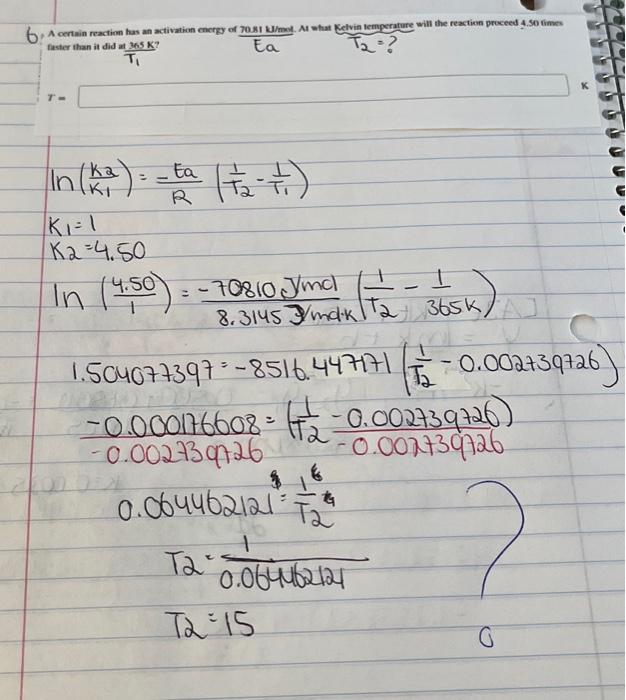 6. A certain reaction has an activation energy of 70.81 kJ/mol. At what Kelvin temperature will the reaction proceed 4.50 times
faster than it did at 365 K?
Ea T2 = ?
T1
T = K
ln(K2/K1) = -Ea/R (1/T2 - 1/T1)
K1 = 1
K2 = 4.50
ln (4.50/1) = -70810 J/mol / 8.3145 J/mol·K (1/T2 - 1/365K)
1.504077397 = -8516.447171 (1/T2 - 0.002739726)
-0.000176608 = (1/T2 - 0.002739726)
-0.002739726 -0.002739726
0.064462121 = 1/T2
T2 = 1/0.064462121
T2 = 15
?